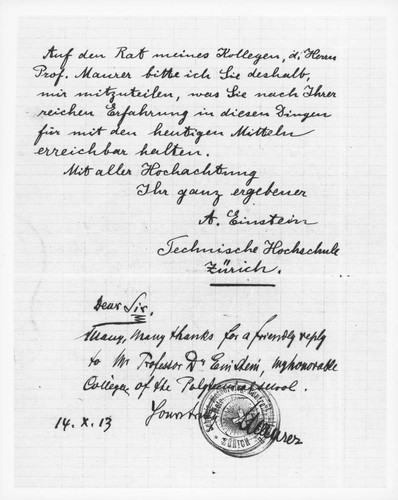 Auf den Rat meines Kollegen, d. Herrn
Prof. Maurer bitte ich Sie deshalb,
mir mitzuteilen, was Sie nach Ihrer
reichen Erfahrung in diesen Dingen
für mit den heutigen Mitteln
erreichbar halten.
Mit aller Hochachtung
Ihr ganz ergebener
A. Einstein
Technische Hochschule
Zürich.
Dear Sir,
Many, many thanks for a friendly reply
to Mr Professor Dr Einstein, my honorable
Collegue of the Polytechnical school.
Yours truly
14. X. 13
Maurer
ZÜRICH